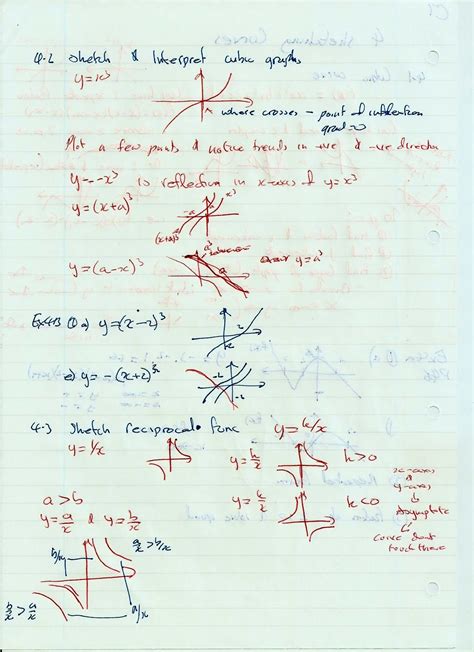 4.2 Sketch & Interpret cubic graphs
y=x³
where crosses - point of inflection
grad=0
Plot a few points & notice trends in +ve & -ve direction
y=-x³ is reflection in x-axis of y=x³
y=(x+a)³
-a
x³
(x+a)³
y=(a-x)³
a³
a
y=a³
Ex 4B ① a) y=(x-2)³
2
e) y=-(x+2)³
-2
4.3 Sketch reciprocal func
y=k/x
y=1/x
y=k/x
k>0
x-axis
&
y-axis
y=k/x
k<0
Asymptote
curve don't
touch these
a>b
y=a/x & y=b/x
a/x > b/x
b/x
b/x > a/x
a/x